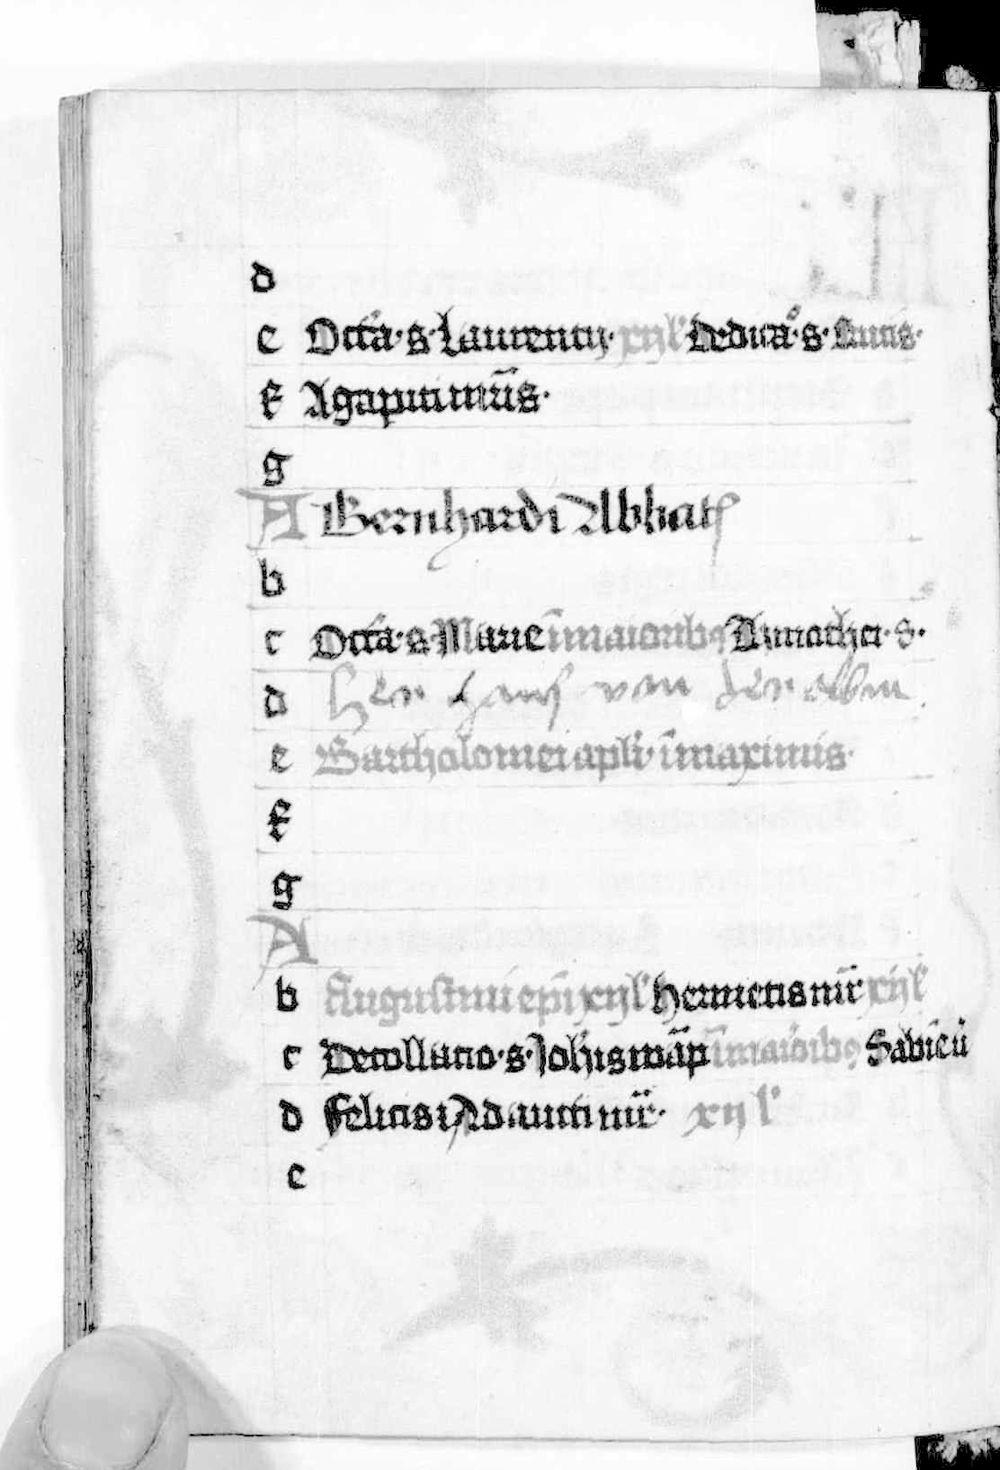 d
e Octa͞·s·Laurentij· xijl' Dedica͞·s· Crucis·
f Agapiti mr͞is·
g
A Bernhardi Abbatis
b
c Octa͞·s·Marie in maiorib9 Thimothei·s·
d Her Hans von der
e Bartholomei apli· in maximis·
f
g
A
b Augustini epi͞ xijl' Hermetis mr͞ xijl'
c Decollatio·s·Joh͞is in maioib9 Sabie͞
d Felicis i Adaucti mr͞· xij l'
e